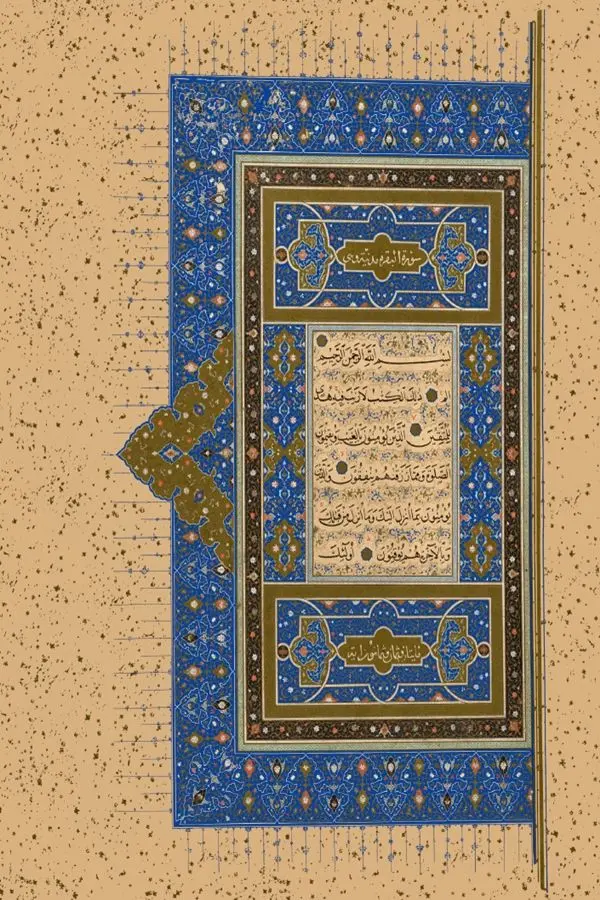 سورة البقرة مدنية وهى
بسم الله الرحمن الرحيم
الم ذلك الكتب لا ريب فيه هدى
للمتقين الذين يؤمنون بالغيب ويقيمون
الصلوة ومما رزقنهم ينفقون والذين
يؤمنون بما انزل اليك وما انزل من قبلك
وبالاخرة هم يوقنون اولئك